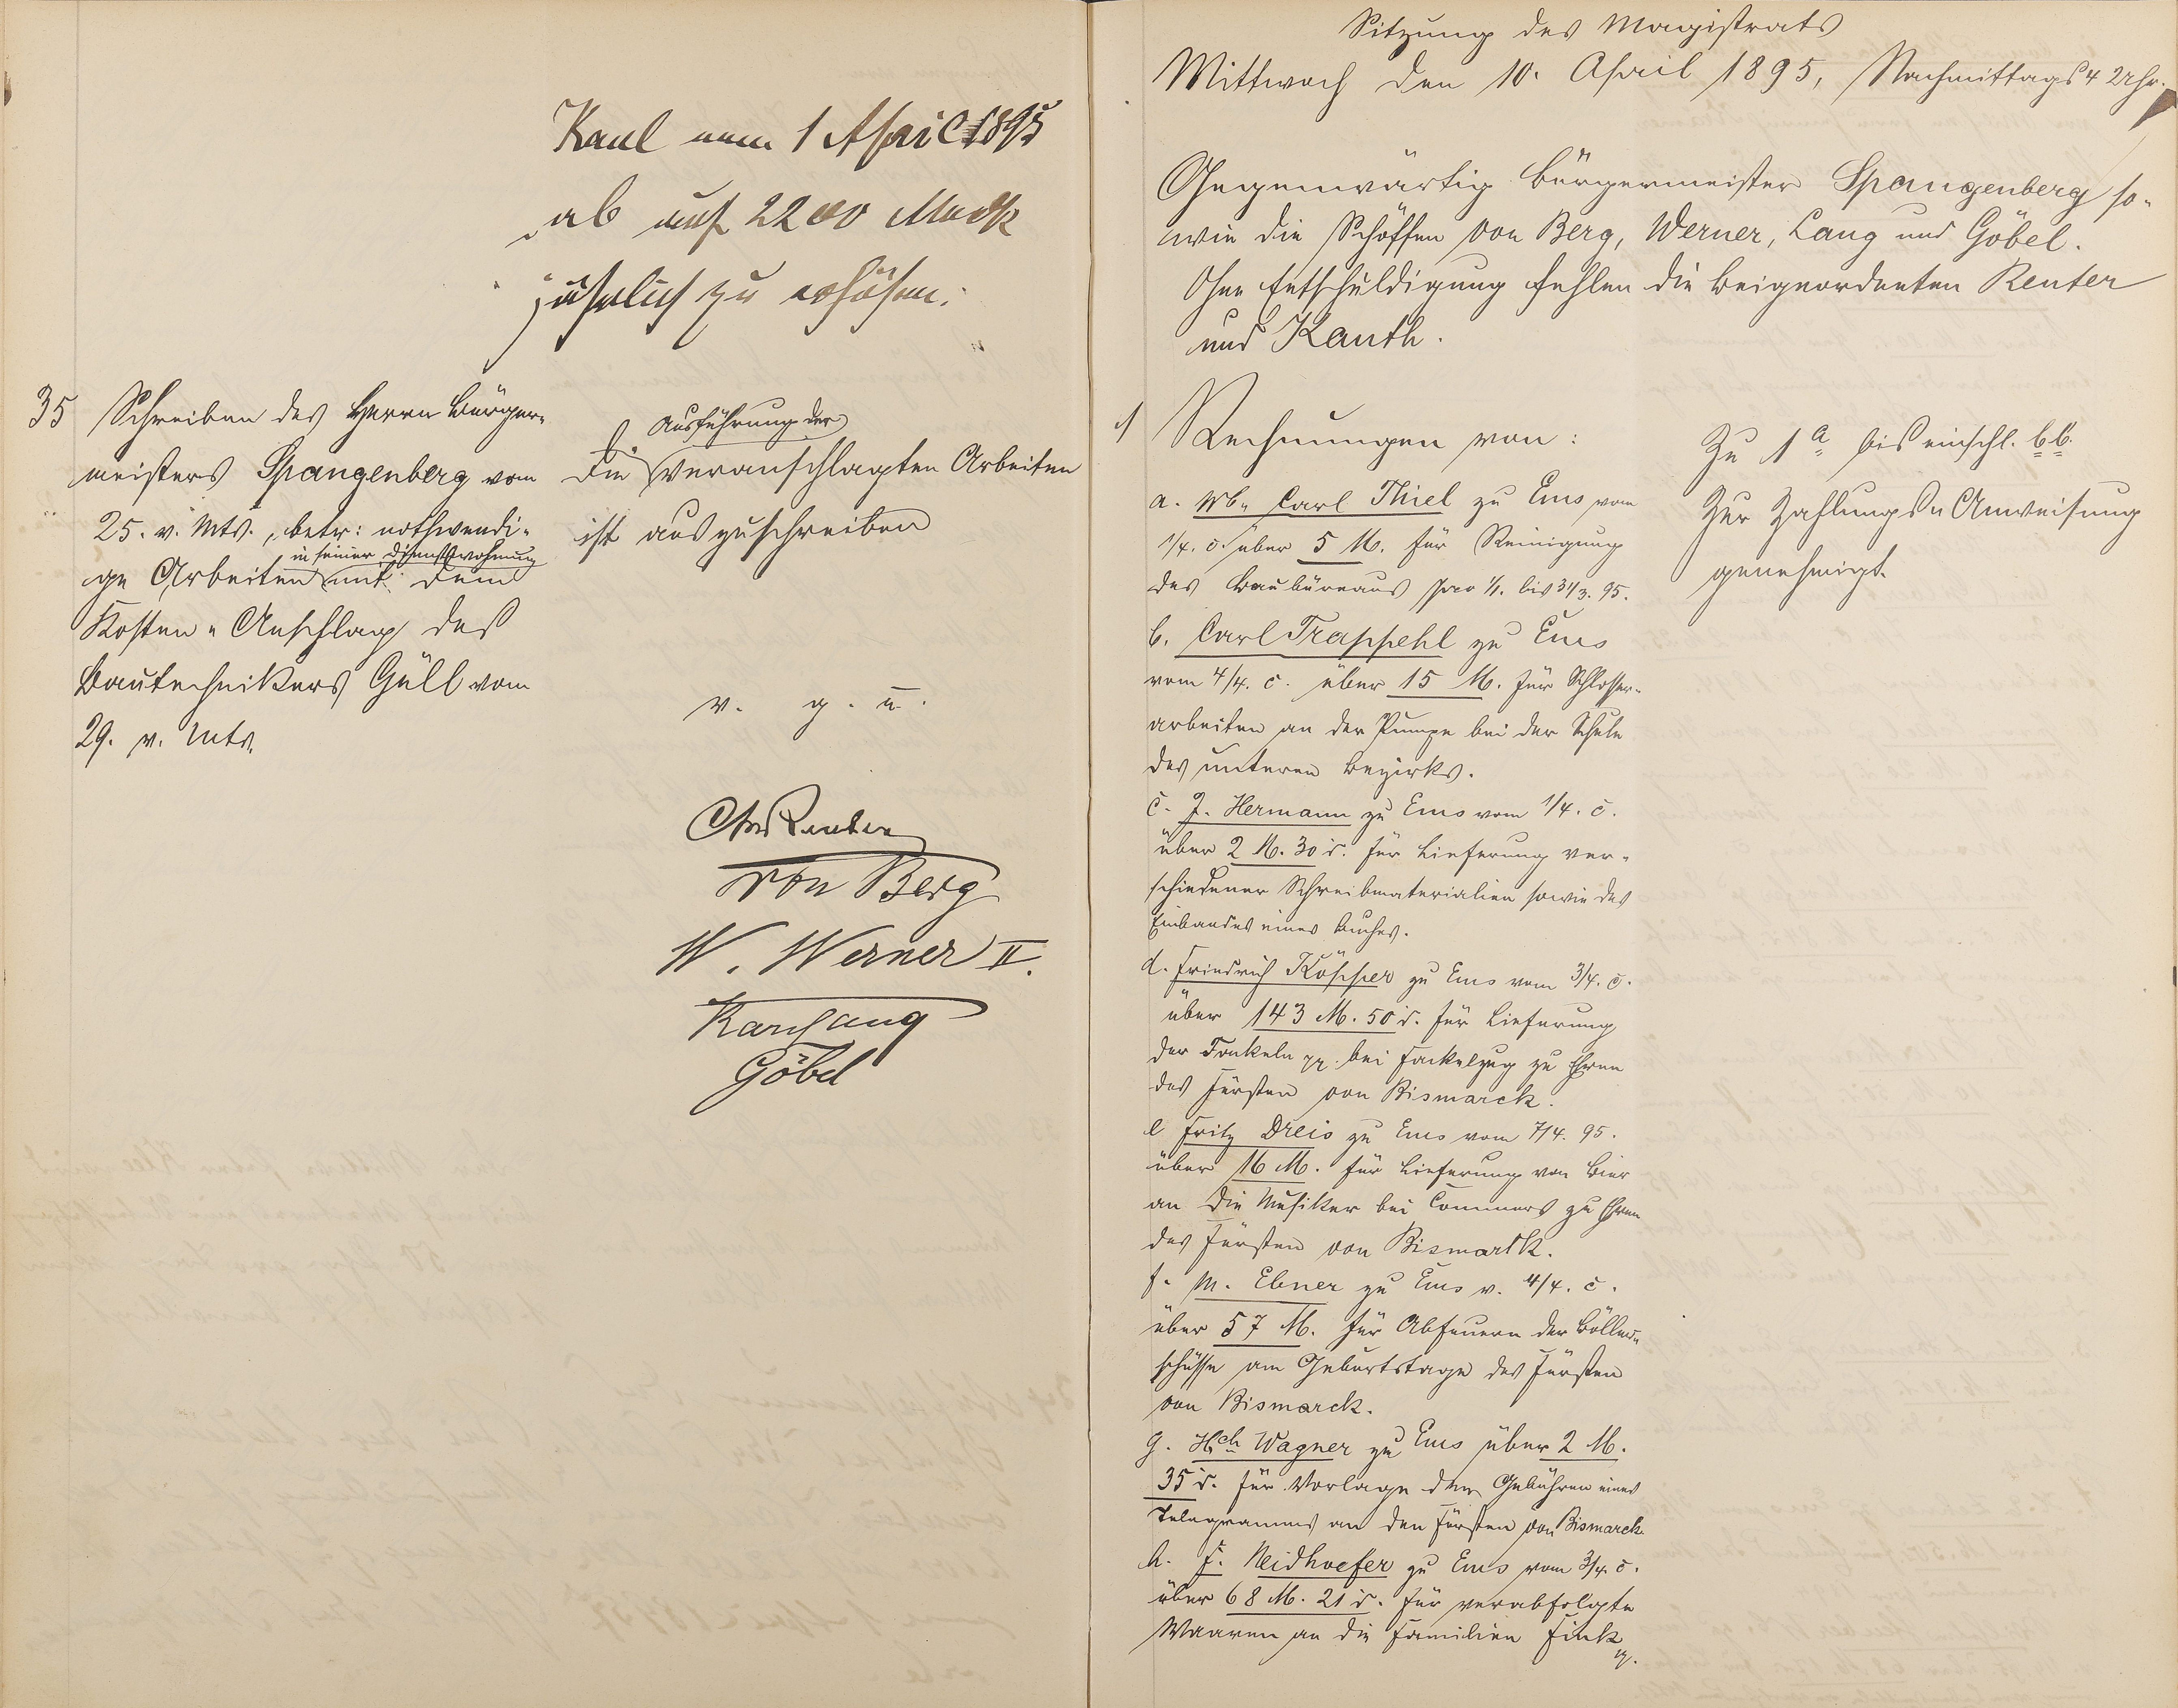 Kaul vom 1 April 1895
ab auf 2200 Mark
jährlich zu erhöhen.
35 Schreiben des Herrn Bürger-
meisters Spangenberg vom
25. v. Mts., betr: nothwendi-
in seiner Dienstwohnung
ge Arbeiten mit dem
Kosten-Anschlag des
Bautechnikers Güll vom
29. v. Mts.
Ausführung der
Die veranschlagten Arbeiten
ist auszuschreiben
v. g. u.
Reuter
von Berg
W. Werner II.
Karl Lang
Göbel
Sitzung des Magistrats
Mittwoch den 10. April 1895, Nachmittags 4 Uhr.
Gegenwärtig Bürgermeister Spangenberg so-
wie die Schöffen von Berg, Werner, Lang und Göbel.
Ohne Entschuldigung fehlen die Beigeordneten Reuter
und Kauth.
1 Rechnungen von:
a. Wb. Carl Thiel zu Ems vom
1/4. c. über 5 M. für Reinigung
des Baubüreaus pro 1/1. bis 31/3. 95.
b. Carl Trappehl zu Ems
vom 4/4. c. über 15 M. für Schlosser-
arbeiten an der Pumpe bei der Schule
des unteren Bezirks.
c. J. Hermann zu Ems vom 1/4. c.
über 2 M. 30 d. für Lieferung ver-
schiedener Schreibmaterialien sowie des
Einbandes eines Buches.
d. Friedrich Köpper zu Ems vom 3/4. c.
über 143 M. 50 d. für Lieferung
der Fackeln pp. bei Fackelzug zu Ehren
des Fürsten von Bismarck.
e Fritz Dreis zu Ems vom 7/4. 95.
über 16 M. für Lieferung von Bier
an die Musiker bei Commers zu Ehren
des Fürsten von Bismarck.
f. M. Ebner zu Ems v. 4/4. c.
über 57 M. für Abfeuern der Böller-
schüsse am Geburtstage des Fürsten
von Bismarck.
g. Hch Wagner zu Ems über 2 M.
35 d. für Vorlage der Gebühren eines
Telegramms an den Fürsten von Bismarck
h. F. Neidhoefer zu Ems vom 3/4. c.
über 68 M. 21 d. für verabfolgte
Waaren an die Familien Fink
pp.
Zu 1 a bis einschl. bb.
Zur Zahlungs-Anweisung
genehmigt.